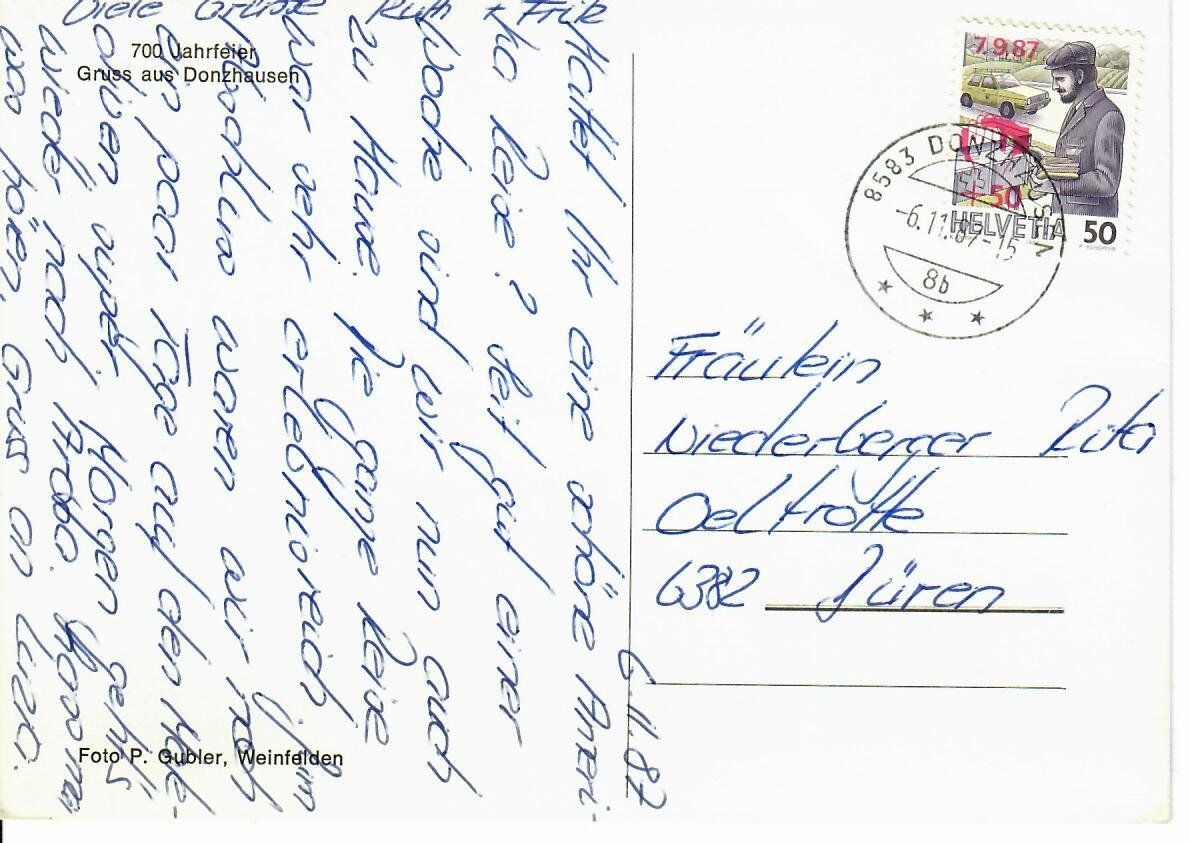 700 Jahrfeier
Gruss aus Donzhausen
6.11.87
Hattet Ihr eine schöne Ameri-
ka Reise? Seit gut einer
Woche sind wir nun auch
zu Hause. Die ganze Reise
war sehr erlebnisreich. Zum
Abschluss waren wir noch
ein paar Tage auf den Male-
diven super. Morgen geht's
wieder nach Arosa.
was hören, Gruss an Luzia.
Viele Grüsse Ruth + Fritz
Foto P. Gubler, Weinfelden
7.9.87
+50
HELVETIA 50
8583 DONZHAUSEN
-6.11.87-15
8b
Fräulein
Niederberger Rita
Oeltrotte
6382 Büren